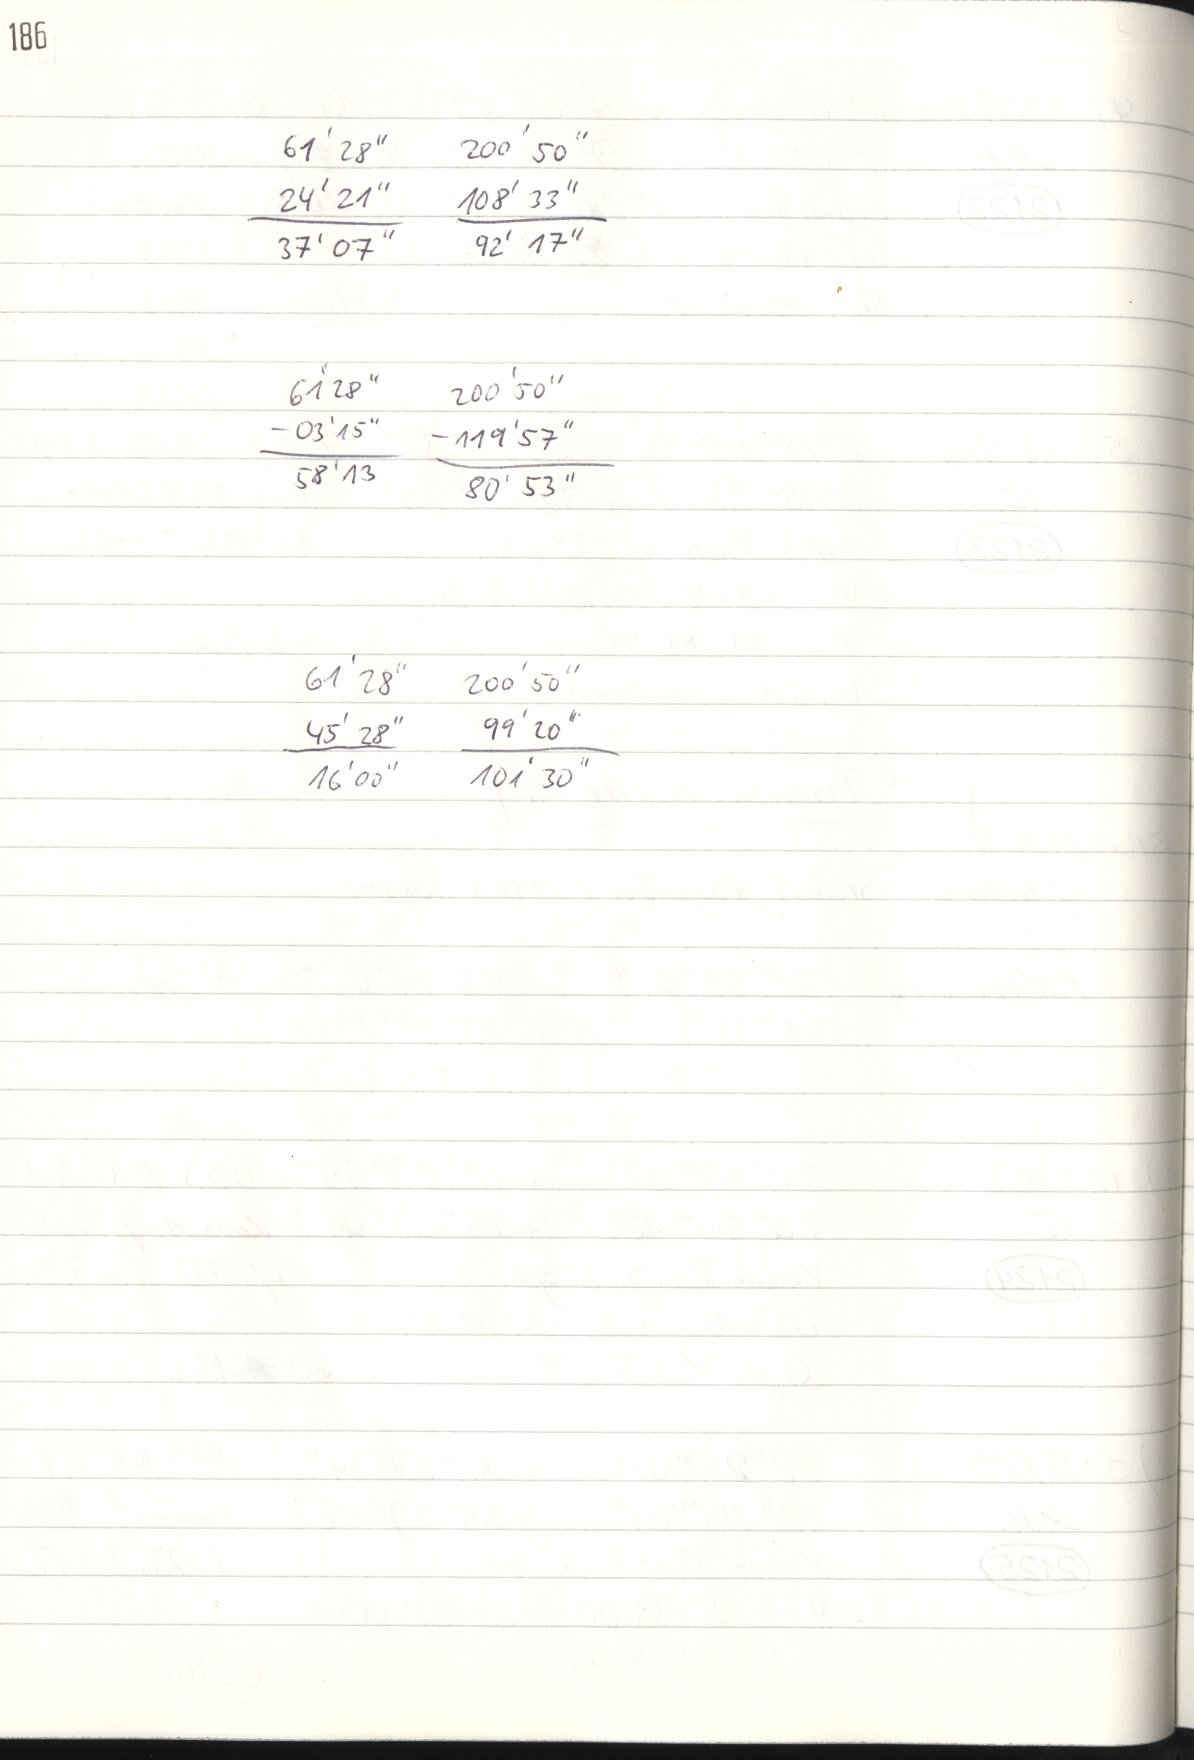 186
61' 28" 200' 50"
24' 21" 108' 33"
37' 07" 92' 17"
61' 28" 200' 50"
- 03' 15" - 119' 57"
58' 13 80' 53"
61' 28" 200' 50"
45' 28" 99' 20"
16' 00" 101' 30"